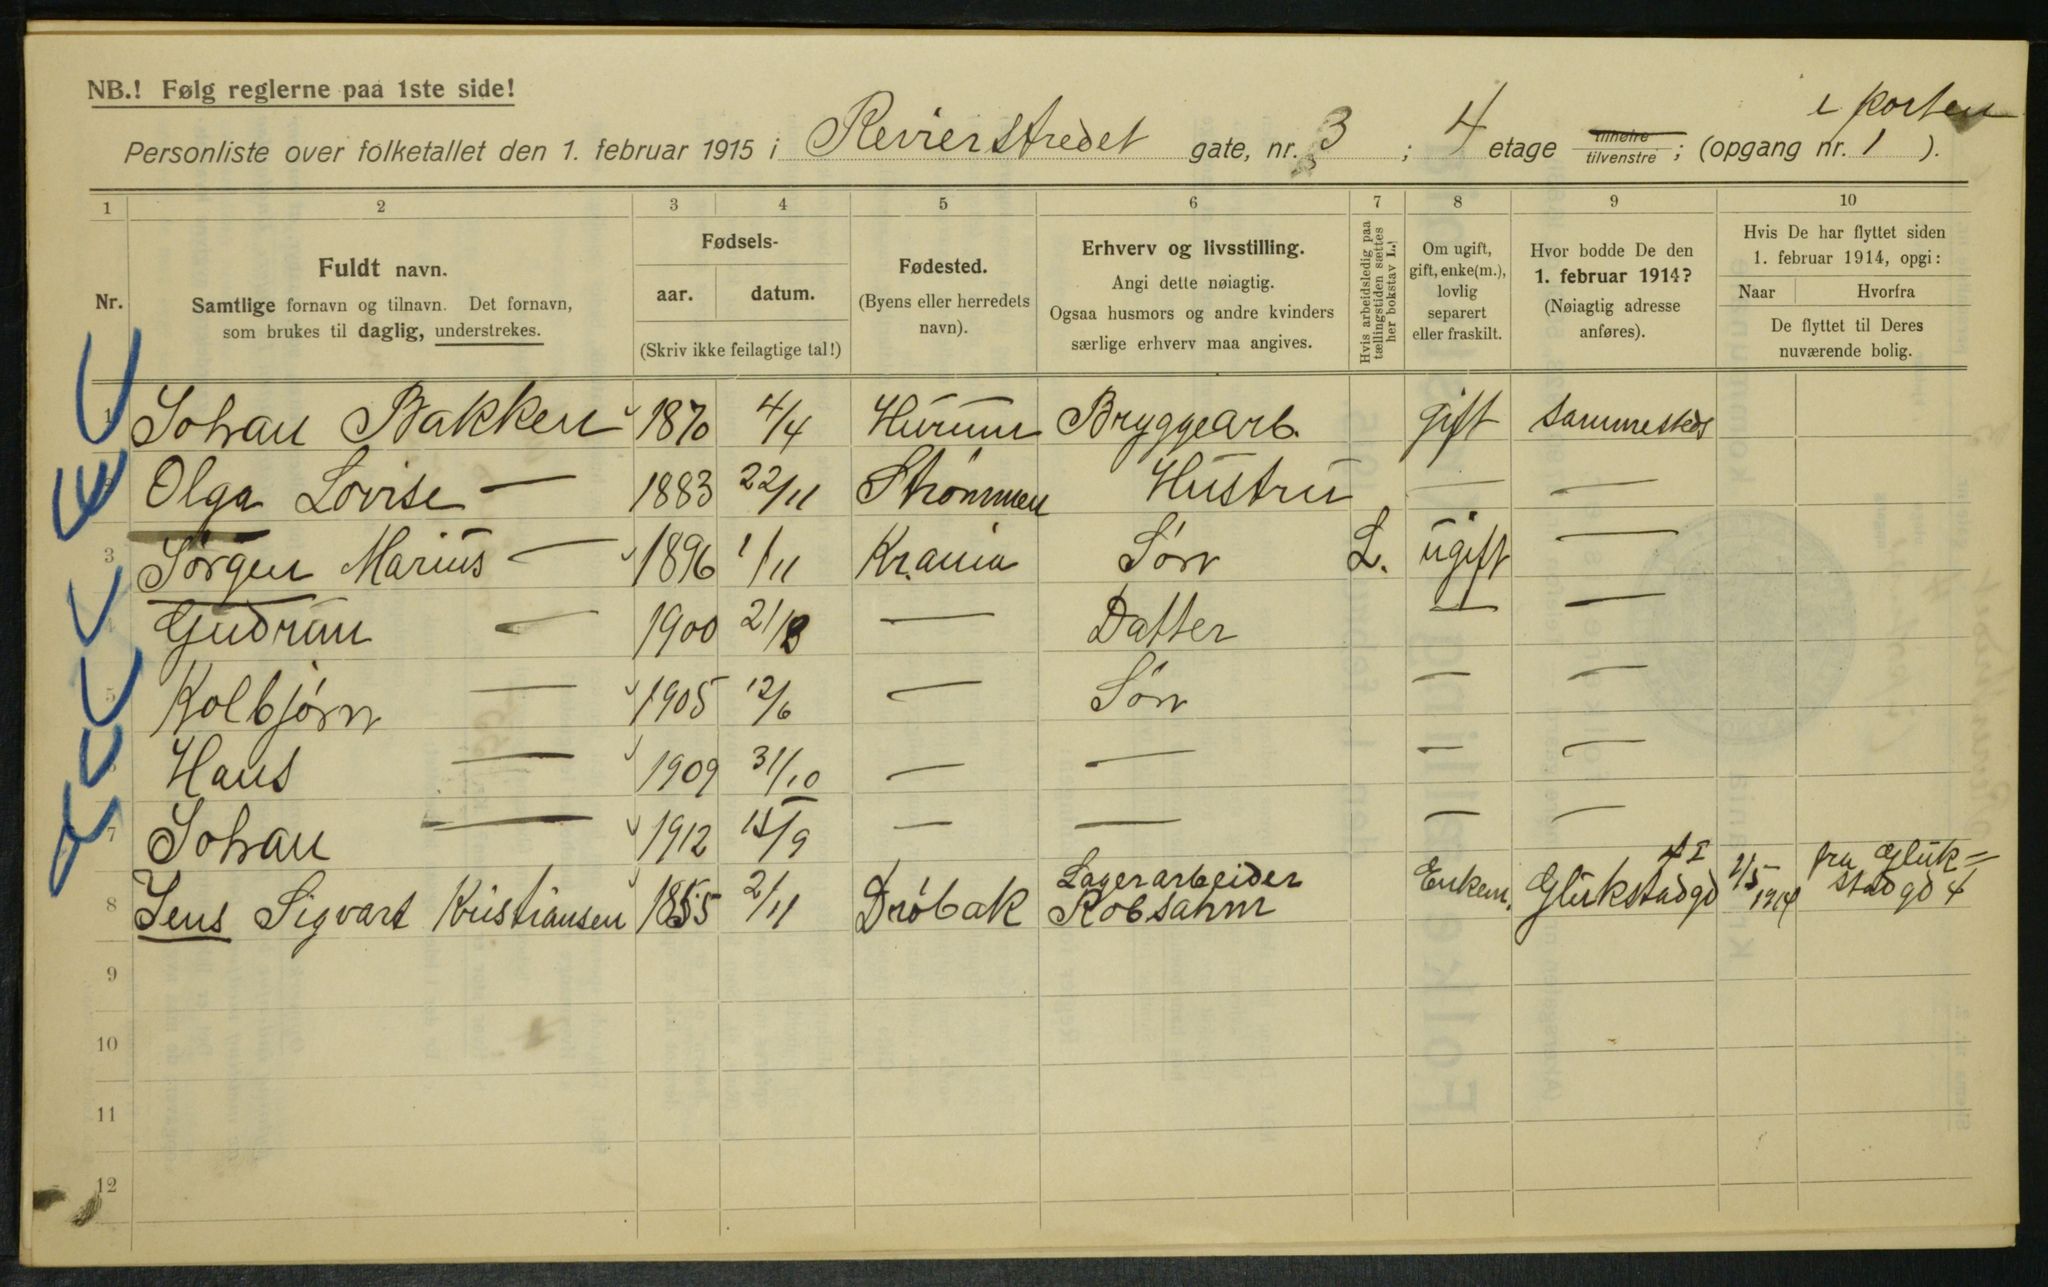 NB.! Følg reglerne paa 1ste side!
i porten
Personliste over folketallet den 1. februar 1915 i Revierstredet gate, nr. 3 ; 4 etage tilhøire tilvenstre ; (opgang nr. 1 ).
1 2 3 4 5 6 7 8 9 10
Nr.
Fuldt navn.
Samtlige fornavn og tilnavn. Det fornavn,
som brukes til daglig, understrekes.
Fødsels-
aar. datum.
(Skriv ikke feilagtige tal!)
Fødested.
(Byens eller herredets
navn).
Erhverv og livsstilling.
Angi dette nøiagtig.
Ogsaa husmors og andre kvinders
særlige erhverv maa angives.
Hvis arbeidsledig paa
tællingstiden sættes
her bokstav L.!
Om ugift,
gift, enke(m.),
lovlig
separert
eller fraskilt.
Hvor bodde De den
1. februar 1914?
(Nøiagtig adresse
anføres).
Hvis De har flyttet siden
1. februar 1914, opgi:
Naar Hvorfra
De flyttet til Deres
nuværende bolig.
1 Johan Bakken 1870 4/4 Hurum Bryggearb. gift sammesteds
2 Olga Lovise — 1883 22/11 Strømmen Hustru — —
3 Jørgen Marius — 1896 1/11 Kr.ania Søn L. ugift —
4 Gudrun — 1900 21/3 — Datter — —
5 Kolbjørn — 1905 12/6 — Søn — —
6 Hans — 1909 31/10 — — — —
7 Johan — 1912 15/9 — — — —
8 Jens Sigvart Kristiansen 1855 2/11 Drøbak Lagerarbeider Robsahm Enkem. Glükstadgd 4 I 1/5 1914 fra Glük=stadgd 4
9
10
11
12